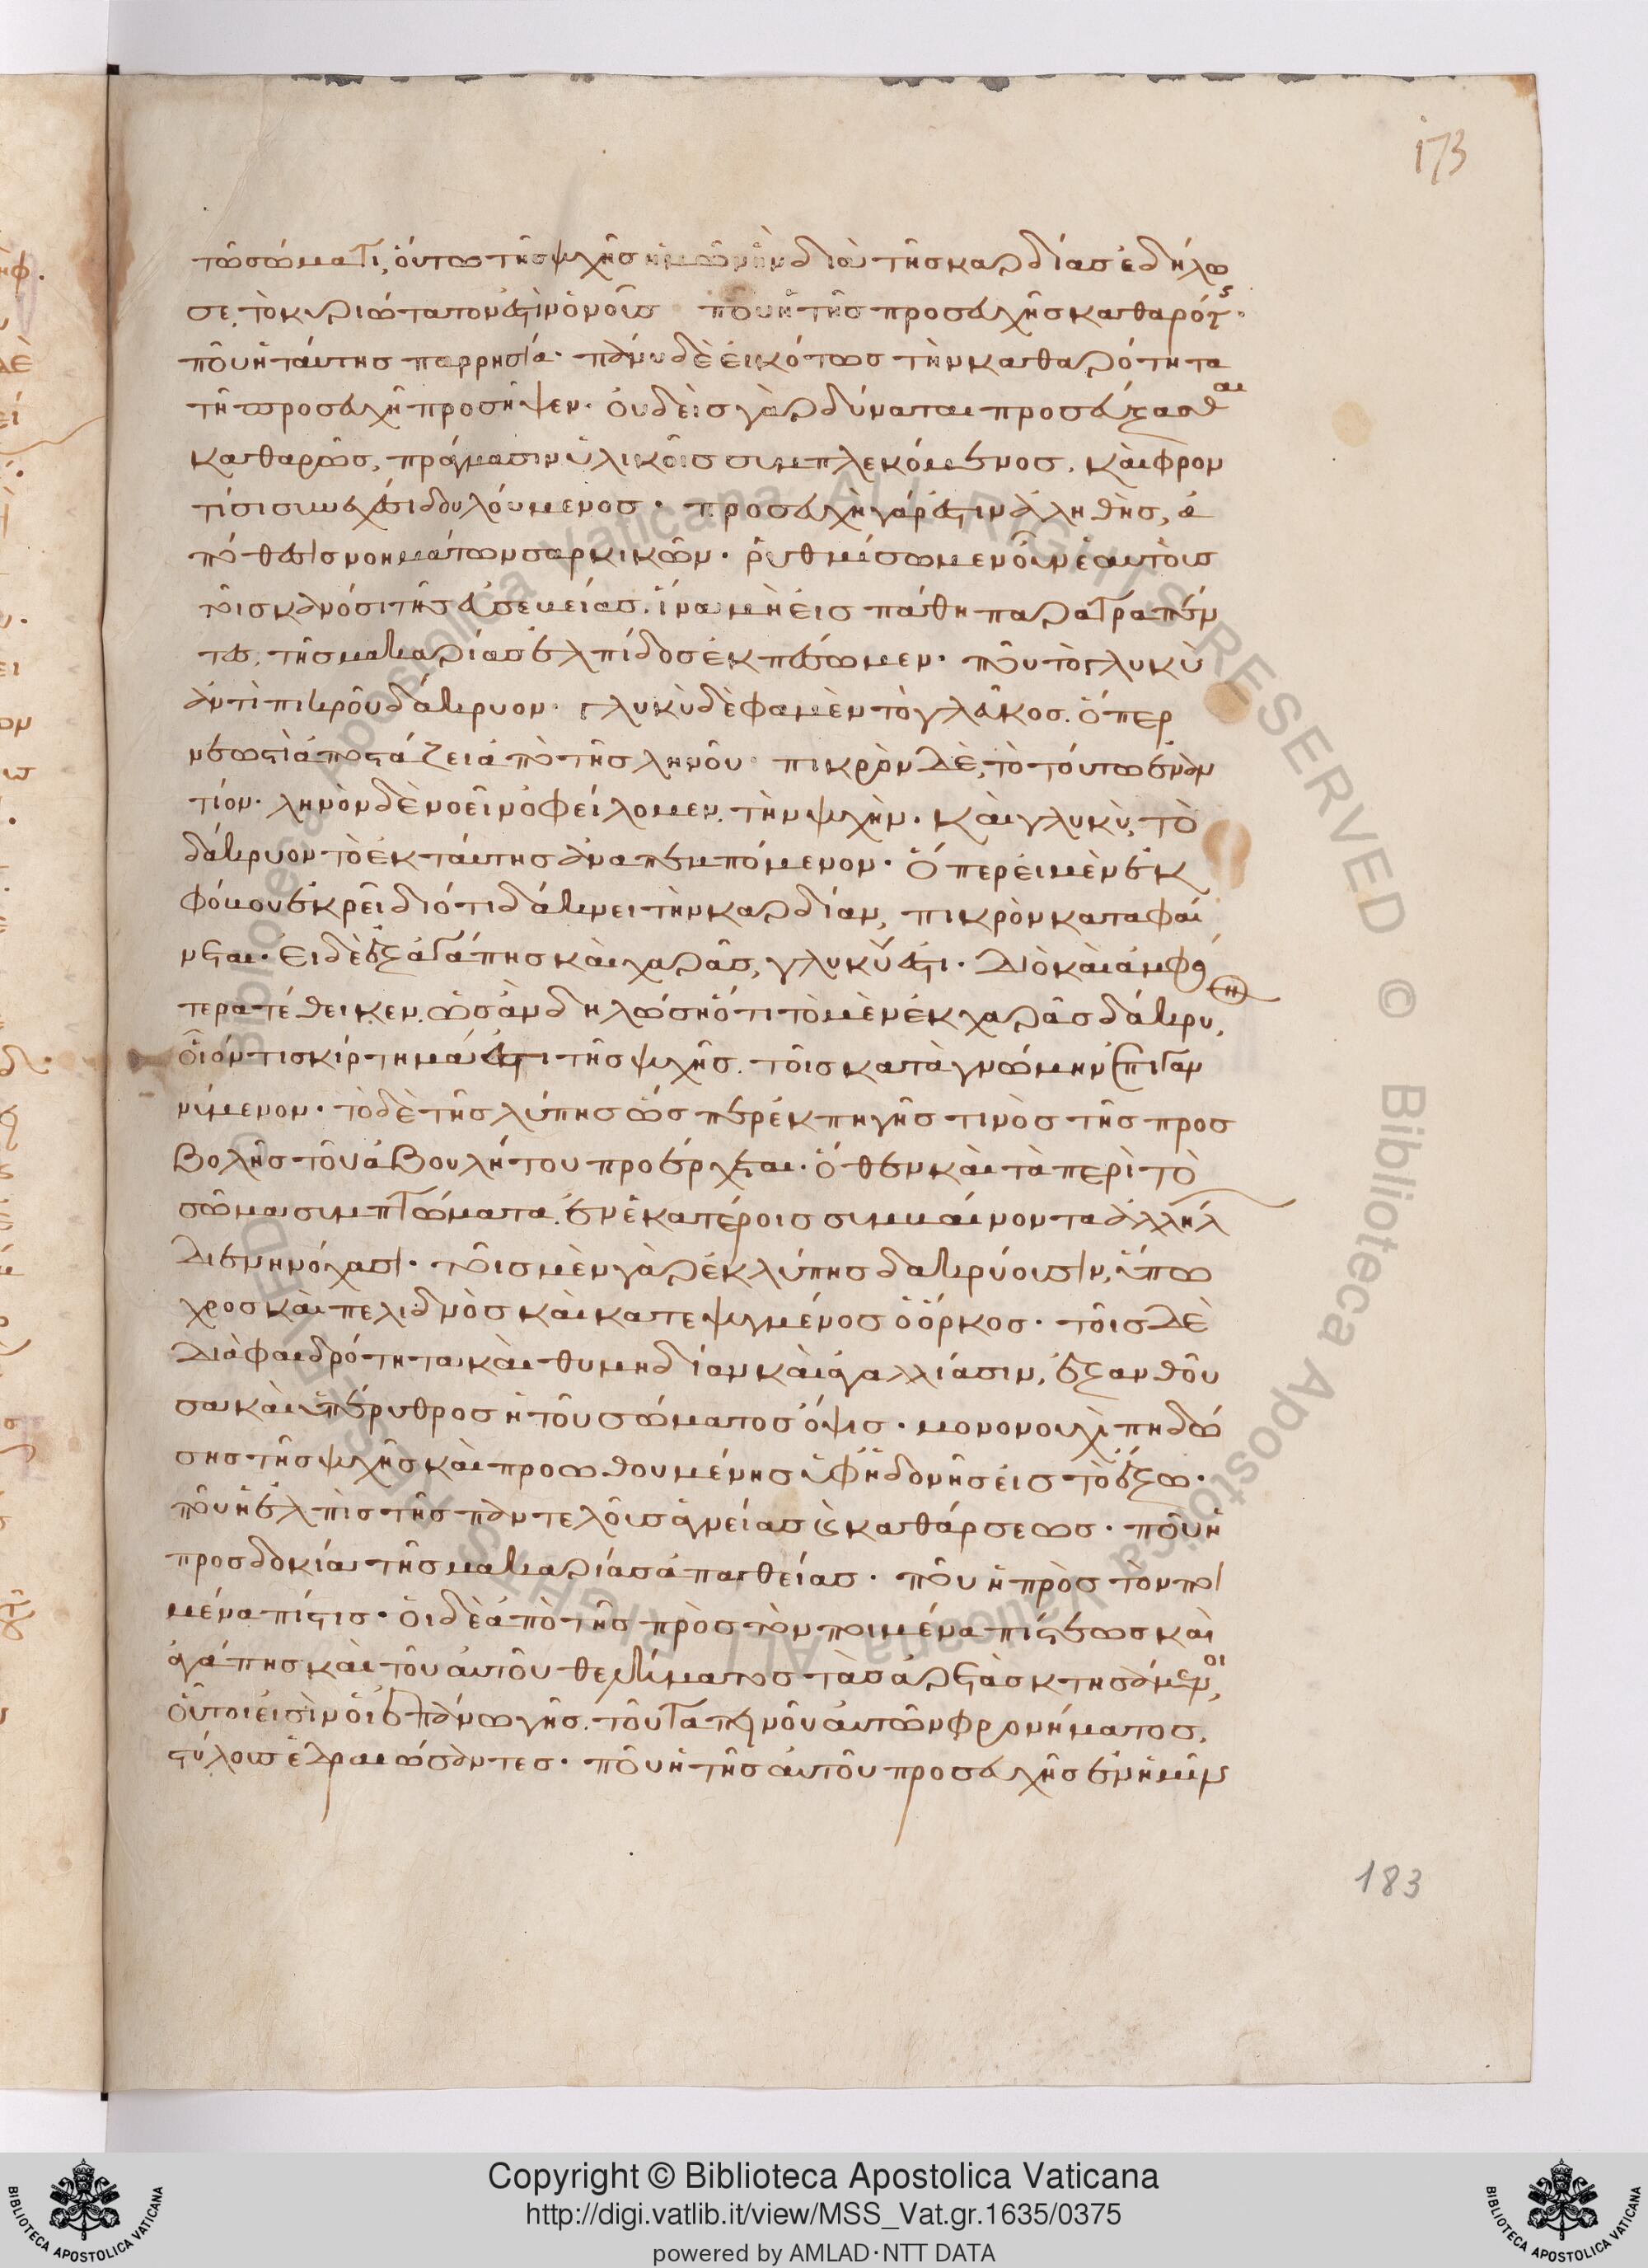 173
τῶ σώματι, ὅυτω τῆς ψυχῆς ἡμῶν ἣν διὰ τῆς καρδίας ἐδήλω
σε, τὸ κυριώτατον ἐστὶν ὁ νοῦς ποῦ ἡ τῆς προσευχῆς καθαρότης·
ποῦ ἡ ταύτης παρρησία· πάνυ δὲ ἐικότως τὴν καθαρότητα
τῆ προσευχῆ προσῆψεν· ὀυδεὶς γὰρ δύναται προσεύξασθαι
καθαρῶς, πράγμασιν ὑλικοῖς συμπλεκόμενος, καὶ φρον
τίσι συνεχέσι δουλούμενος· προσευχὴ γάρ ἐστιν ἀληθὴς, ἀ
πόθεσις νοημάτων σαρκικῶν· ῥυθμίσωμεν οὖν ἑαυτοὺς
τοῖς κανόσι τῆς ἐυσεβείας. ἵνα μὴ εἰς πάθη παρατραπέν
τες, τῆς μακαρίας ἐλπίδος ἐκπέσωμεν· ποῦ τὸ γλυκὺ
ἀντὶ πικροῦ δάκρυον· γλυκὺ δὲ φαμὲν τὸ γλεῦκος. ὅπερ
νεωστὶ ἀποστάζει ἀπὸ τῆς ληνοῦ· πικρὸν δὲ, τὸ τούτω ἐναν
τίον· ληνὸν δὲ νοεῖν ὀφείλομεν, τὴν ψυχὴν· καὶ γλυκὺ, τὸ
δάκρυον τὸ ἐκ ταύτης ἀναπεμπόμενον· Ὅπερ ἐι μὲν ἐκ
φόβου ἐκρεῖ διότι δάκνει τὴν καρδίαν, πικρὸν καταφαί
νεται· Ἐι δὲ ἐξ ἀγάπης καὶ χαρᾶς, γλυκύ ἐστι· Διὸ καὶ ἀμφό
τερα τέθεικεν, ὡς ἂν δηλώση ὅτι τὸ μὲν ἐκ χαρᾶς δάκρυ,
οἷόν τι σκίρτημά ἐστι τῆς ψυχῆς. τοῖς κατὰ γνώμην ἐπιγαν
νύμενον· τὸ δὲ τῆς λύπης ὥσπερ ἐκ πηγῆς τινὸς τῆς προσ
βολῆς τοῦ ἀβουλήτου προέρχεται· ὅθεν καὶ τὰ περὶ τὸ
σῶμα συμπτώματα. ἐν ἑκατέροις συμβαίνοντα ἀλλήλ
διενηνόχασι· τοῖς μὲν γὰρ ἐκ λύπης δακρύουσιν, ὕπω
χρος καὶ πελιδνὸς καὶ κατεψυγμένος ὁ ὄγκος· τοῖς δὲ
διὰ φαιδρότητα καὶ θυμηδίαν καὶ ἀγαλλίασιν, ἐξανθοῦ
σα καὶ ὑπέρυθρος ἡ τοῦ σώματος ὄψις· μονονουχὶ πηδώ
σης τῆς ψυχῆς καὶ προωθουμένης ὑφ' ἡδονῆς εἰς τὸ ἔξω·
ποῦ ἡ ἐλπὶς τῆς παντελοῦς ἁγνείας καὶ καθάρσεως· ποῦ ἡ
προσδοκία τῆς μακαρίας ἀπαθείας· ποῦ ἡ πρὸς τὸν ποι
μένα πίστις· ὁι δὲ ἀπὸ τῆς πρὸς τὸν ποιμένα πίστεως καὶ
ἀγάπης καὶ τοῦ αὐτοῦ θελήματος τὰς ἀρετὰς κτησάμενοι,
οὗτοι εἰσὶν οἱ ἐπάνω γῆς. τοῦ ταπεινοῦ αὐτῶν φρονήματος,
στύλους ἑδραιώσαντες· ποῦ ἡ τῆς αὐτοῦ προσευχῆς ἐν ἡμῖν
183
Copyright © Biblioteca Apostolica Vaticana
http://digi.vatlib.it/view/MSS_Vat.gr.1635/0375
powered by AMLAD·NTT DATA